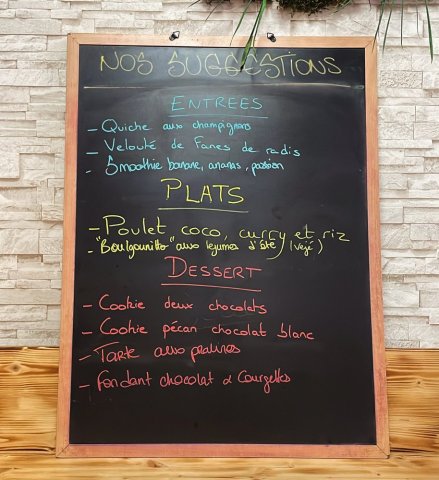 NOS SUGGESTIONS
ENTREES
- Quiche aux champignons
- Velouté de Fanes de radis
- Smoothie banane, ananas, passion
PLATS
- Poulet coco, curry et riz
- "Boulgounitto" aux légumes d'été (végé)
DESSERT
- Cookie deux chocolats
- Cookie pécan chocolat blanc
- Tarte aux pralines
- Fondant chocolat & Courgettes